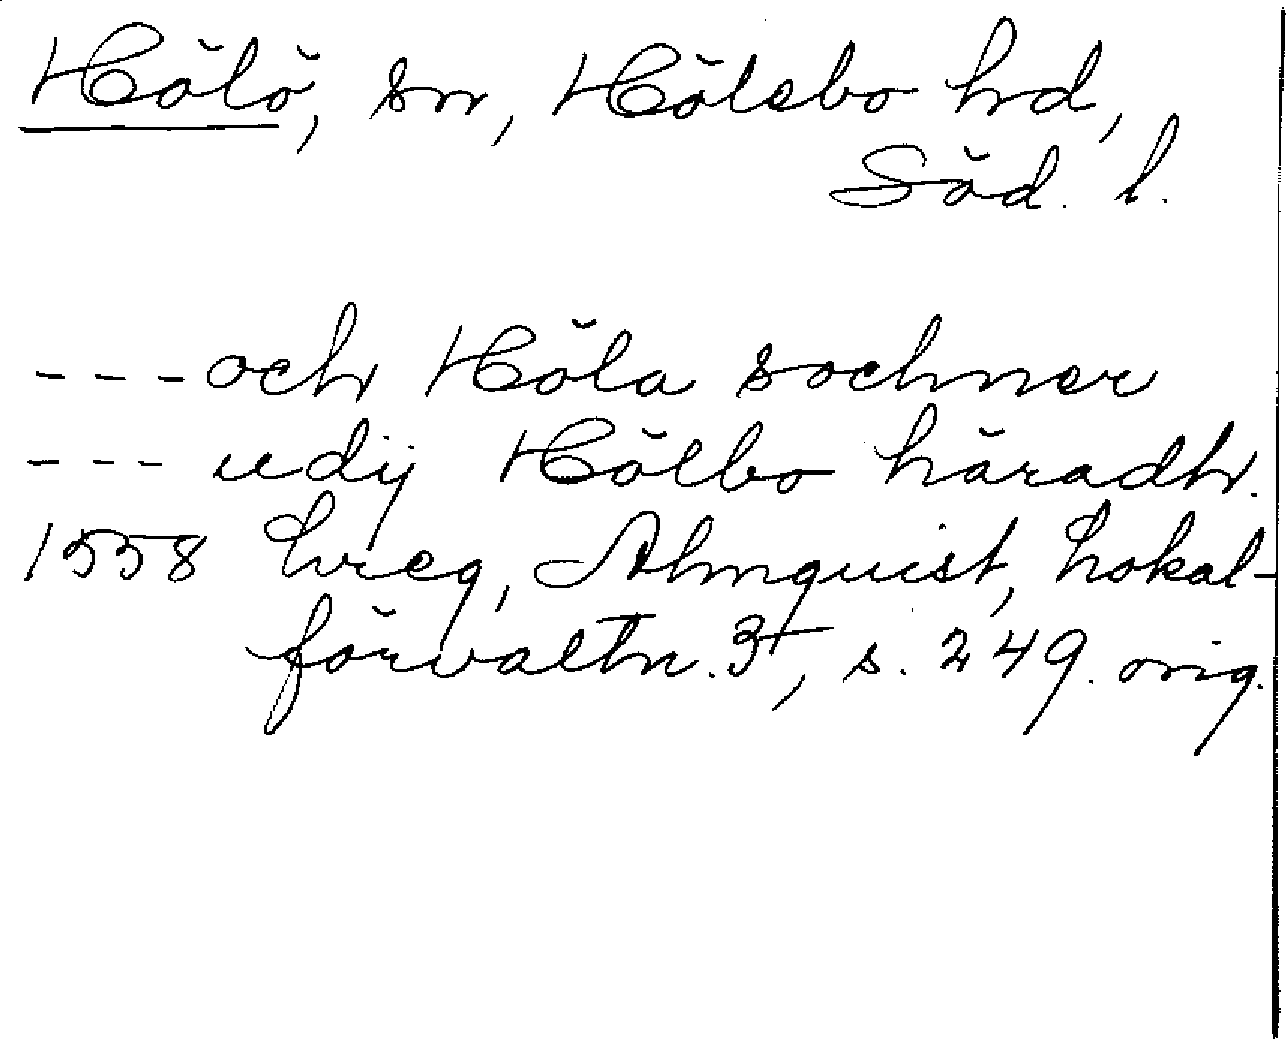 Hölö, sn, Hölebo hd,
Söd. l.
--- och Höla sochner
--- udij Hölbo häradh.
1558 hvieg, Almquist, Lokal-
förvaltn. 3, s. 249. orig.